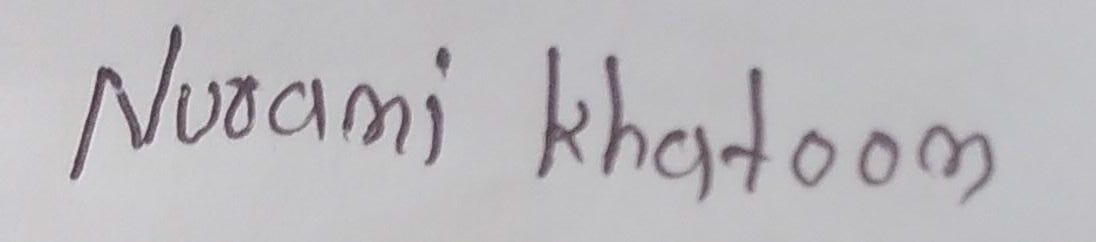 Nurani khatoon